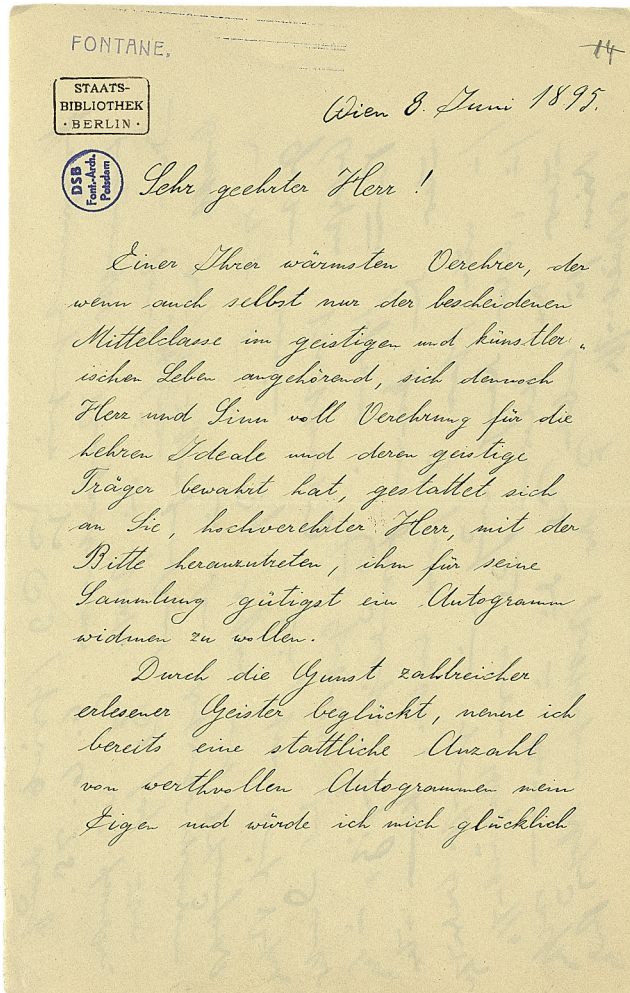 FONTANE.
14
STAATS-
BIBLIOTHEK
· BERLIN ·
DSB
Font.-Arch.
Potsdam
Wien 8. Juni 1895.
Sehr geehrter Herr !
Einer Ihrer wärmsten Verehrer, der
wenn auch selbst nur der bescheidenen
Mittelclasse im geistigen und künstler„
ischen Leben angehörend, sich dennoch
Herz und Sinn voll Verehrung für die
hehren Ideale und deren geistige
Träger bewahrt hat, gestattet sich
an Sie, hochverehrter Herr, mit der
Bitte heranzutreten, ihm für seine
Sammlung gütigst ein Autogramm
widmen zu wollen.
Durch die Gunst zahlreicher
erlesener Geister beglückt, nenne ich
bereits eine stattliche Anzahl
von werthvollen Autogrammen mein
Eigen und würde ich mich glücklich